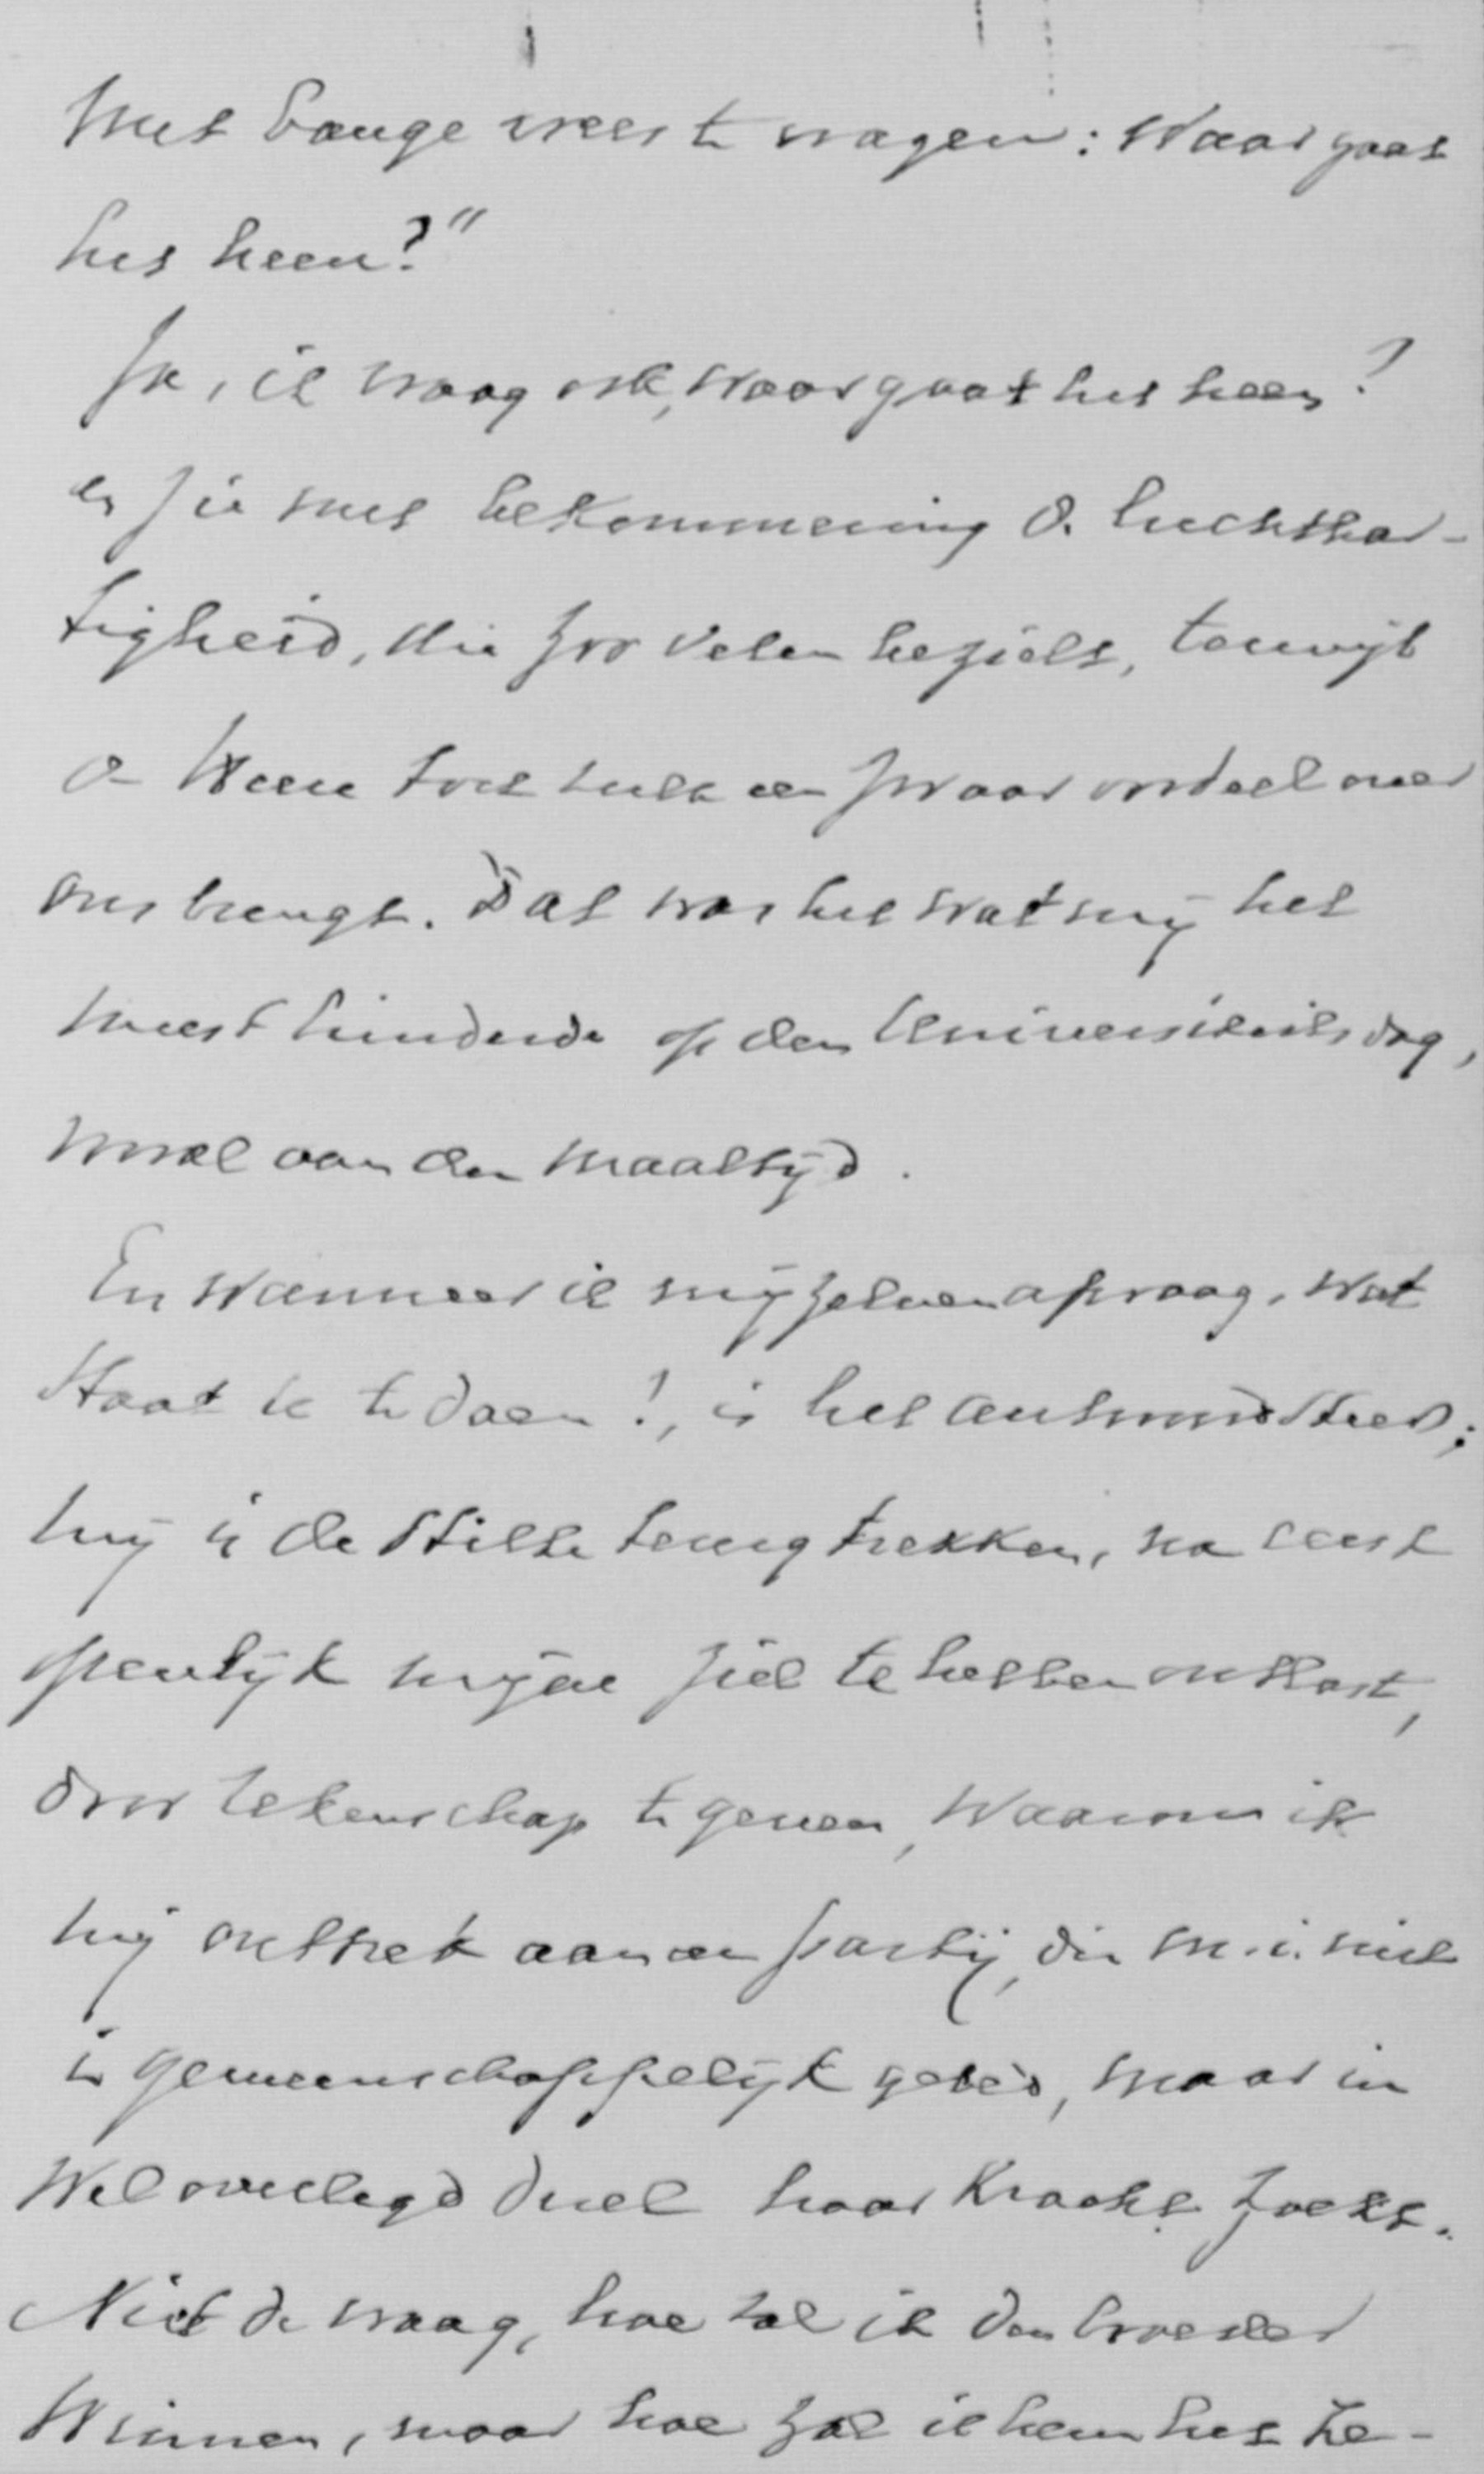 met bange vrees te vragen: Waar gaat
het heen?"
Ja, ik vraag ook, waar gaat het heen?
en zie met bekommering de luchthar-
tigheid, die zoo velen bezielt, terwijl
de Heere toch zulk een zwaar oordeel over
ons brengt. Dat was het wat mij het
meest hinderde op den Universiteitsdag,
vooral aan den maaltijd.
En wanneer ik mijzelven afvraag, wat
staat te doen!, is het antwoord steeds:
mij in de stilte terugtrekken, na eerst
openlijk mijne ziel te hebben ontlast,
door rekenschap te geven, waarom ik
mij onttrek aan een partij, die m.i. niet
in gemeenschappelijk gebed, maar in
wel overlegd duel haar kracht zoekt.
Niet de vraag, hoe zal ik den broeder
winnen, maar hoe zal ik hem het te-